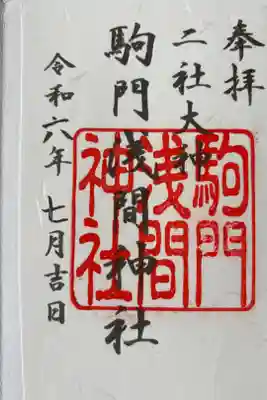 奉拝
二社大神
駒門浅間神社
令和六年 七月吉日
駒門
浅間
神社